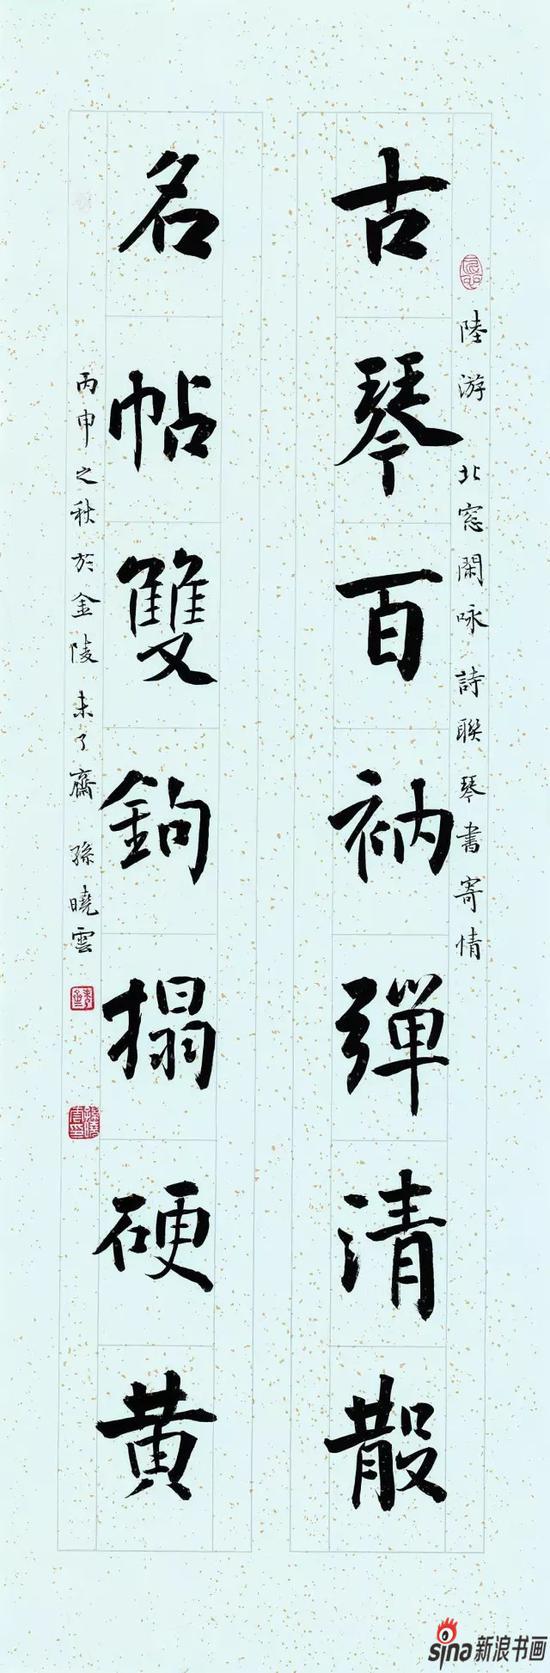 陸游 北窓閑咏 詩聯 琴書寄情
古琴百衲彈清散
名帖雙鉤搨硬黄
丙申之秋於金陵未了齋 孫曉雲
sina新浪书画